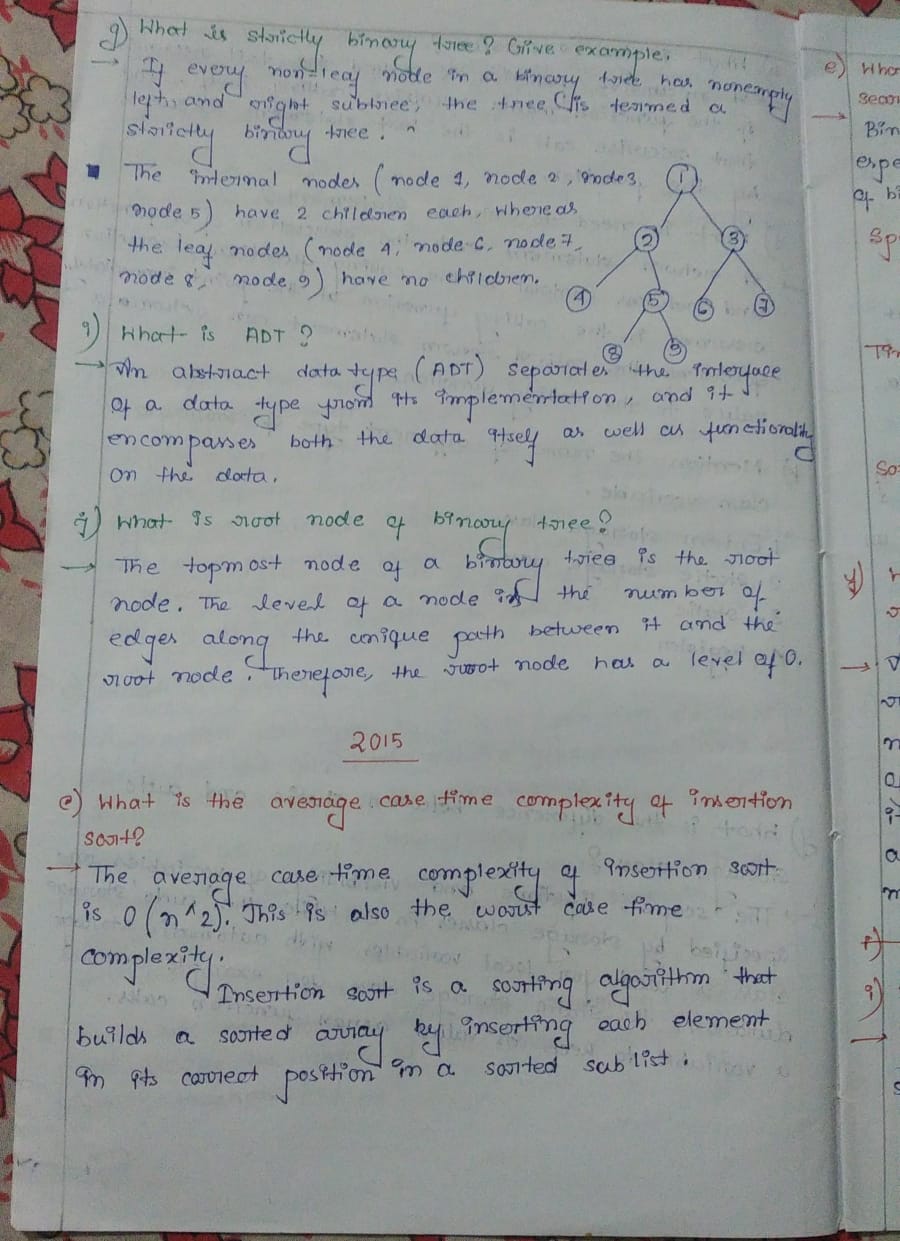 g) What is strictly binary tree? Give example.
→ If every non-leaf node in a binary tree has nonempty
left and right subtree, the tree is termed a
strictly binary tree.
▪ The internal nodes (node 1, node 2, node3,
node 5) have 2 children each, whereas
the leaf nodes (node 4, node 6, node 7,
node 8, node 9) have no children.
1
2 3
4 5 6 7
8 9
i) What is ADT?
→ An abstract data type (ADT) separates the interface
of a data type from its implementation, and it
encompasses both the data itself as well as functionality
on the data.
j) What is root node of binary tree?
→ The topmost node of a binary tree is the root
node. The level of a node is the number of
edges along the unique path between it and the
root node. Therefore, the root node has a level of 0.
2015
e) What is the average case time complexity of insertion
sort?
→ The average case time complexity of insertion sort
is O(n^2). This is also the worst case time
complexity.
Insertion sort is a sorting algorithm that
builds a sorted array by inserting each element
in its correct position in a sorted sublist.
e)
→ Bin